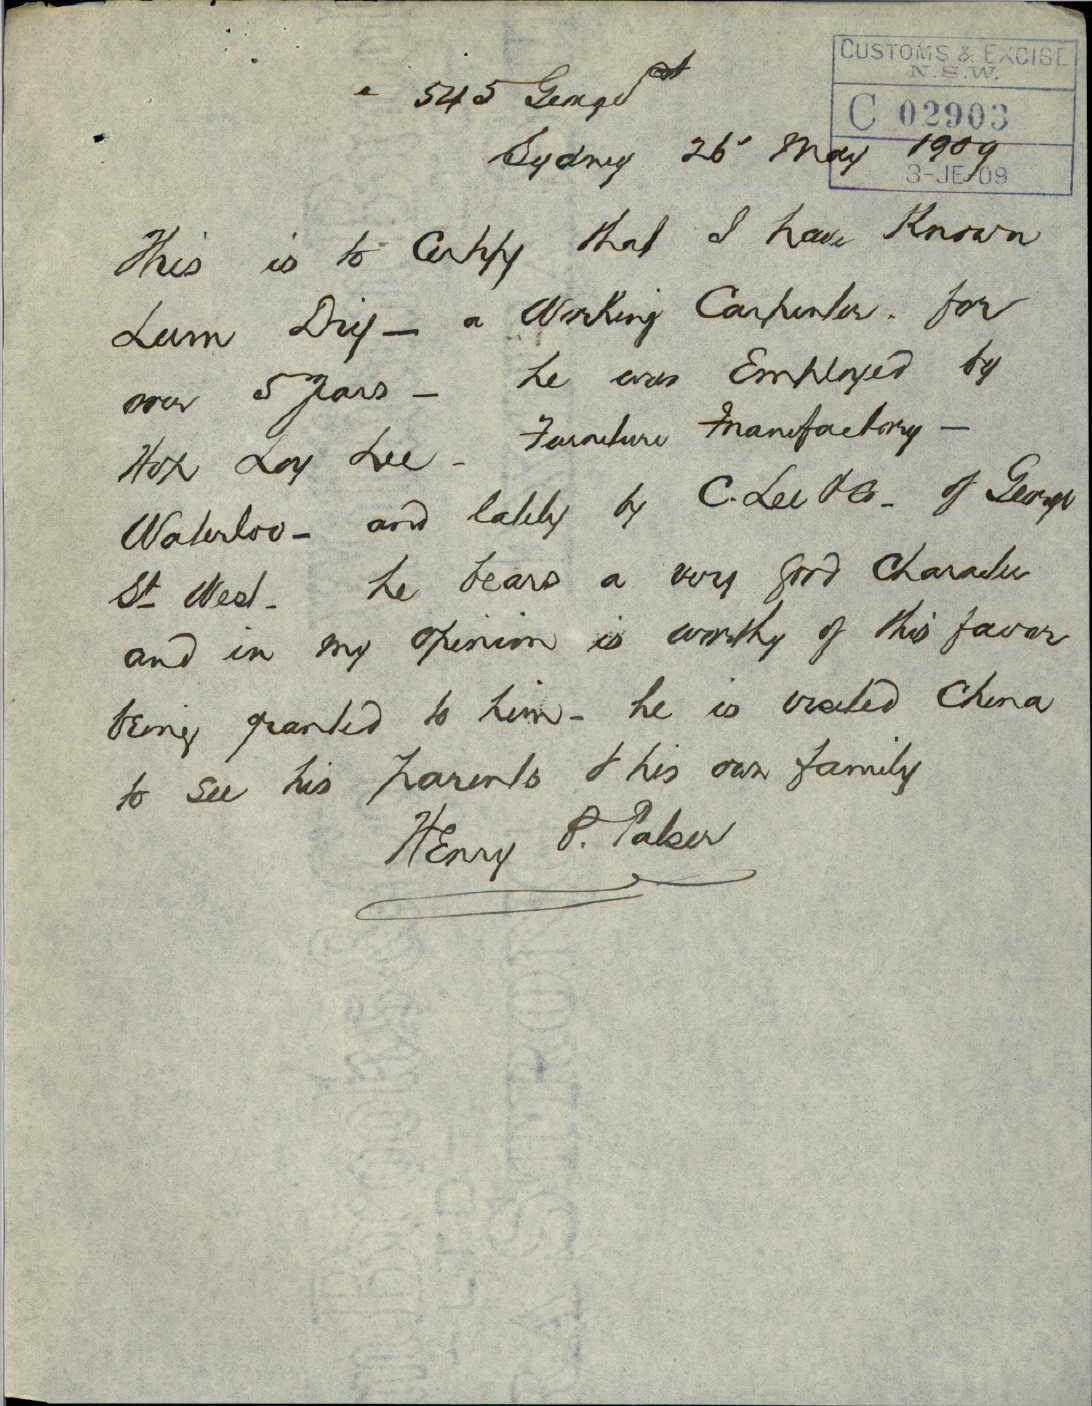 CUSTOMS & EXCISE
N.S.W.
C 02903
3-JE-09
545 George St
Sydney 26 May 1909
This is to Certify that I have Known
Lum Dig - a Working Carpenter. for
over 5 Years - he was Employed by
Hop Loy Lee - Furniture Manufactory -
Waterloo - and lately by C. Lee & Co - of George
St West - he bears a very good Character
and in my opinion is worthy of this favor
being granted to him - he is visited China
to see his parents & his own family
Henry P. Palser